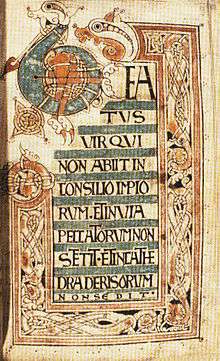 BEA
TUS
VIR QUI
NON ABIIT IN
CONSILIO IMPIO
RUM, ET IN VIA
PECCATORUM NON
STETIT ET IN CATHE
DRA DERISORUM
NON SEDIT